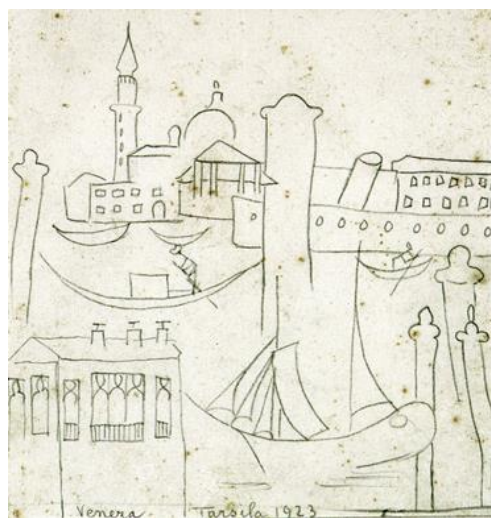 Veneza Tarsila 1923